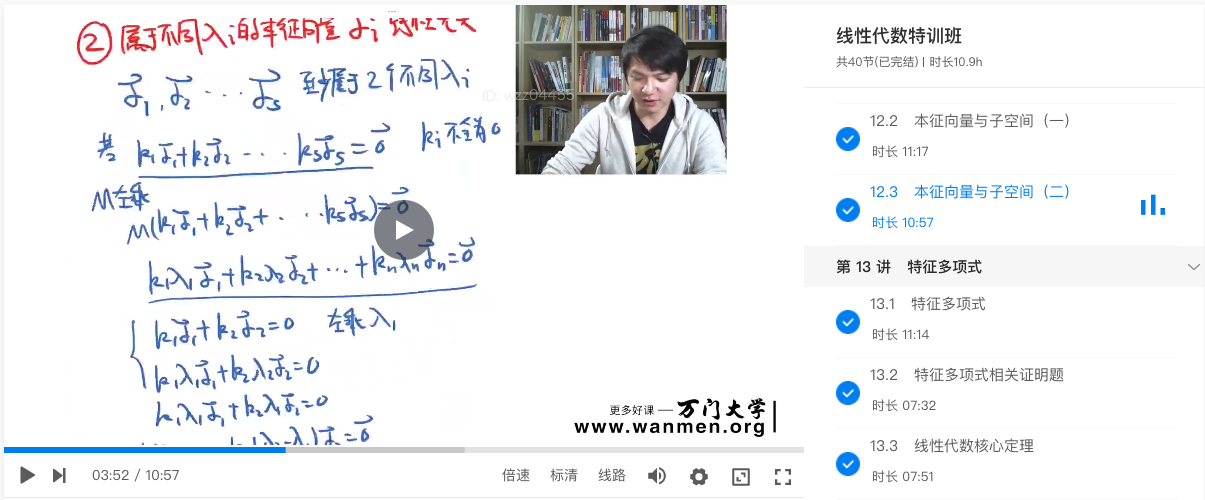 ② 属于不同λi的本征向量 αi 线性无关
α⃗1, α⃗2 ··· α⃗s 至少属于2个不同λi
若 k1α⃗1+k2α⃗2 ···· ksα⃗s=0⃗ ki不全为0
M左乘
M(k1α⃗1+k2α⃗2+ ···ksα⃗s)=0⃗
k1λ1α⃗1+k2λ2α⃗2+···+knλnα⃗n=0⃗
k1α⃗1+k2α⃗2=0 左乘λ1
k1λ1α⃗1+k2λ2α⃗2=0
k1λ1α⃗1+k2λ1α⃗2=0
ID: wzz04455
更多好课 — 万门大学
www.wanmen.org
03:52 / 10:57
倍速 标清 线路
线性代数特训班
共40节(已完结) | 时长10.9h
12.2 本征向量与子空间（一）
时长 11:17
12.3 本征向量与子空间（二）
时长 10:57
第 13 讲 特征多项式
13.1 特征多项式
时长 11:14
13.2 特征多项式相关证明题
时长 07:32
13.3 线性代数核心定理
时长 07:51